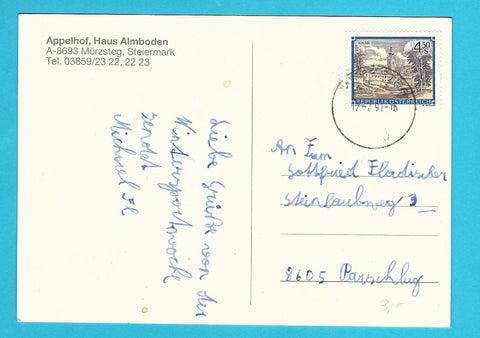 Appelhof, Haus Almboden
A-8693 Mürzsteg, Steiermark
Tel. 03859/23 22, 22 23
Liebe Grüße von der
Wintersportwoche
sendet
Michael
4.50
REPUBLIK ÖSTERREICH
An Fam
Gottfried
Steinlaubweg 3
8605 Parschlug
3,-